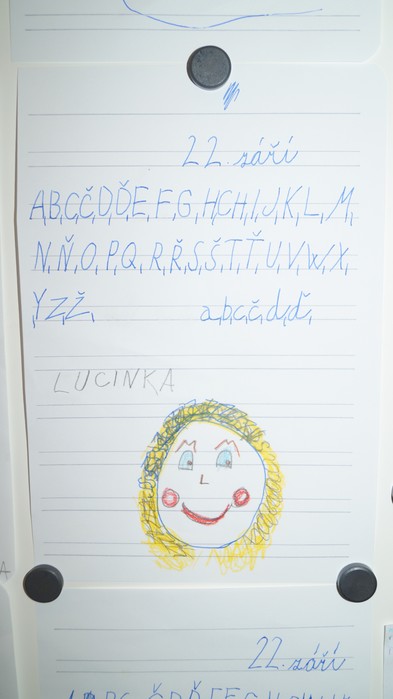 22. září
A, B, C, Č, D, Ď, E, F, G, H, CH, I, J, K, L, M,
N, Ň, O, P, Q, R, Ř, S, Š, T, Ť, U, V, W, X,
Y, Z, Ž,
a, b, c, č, d, ď,
LUCINKA
22. září